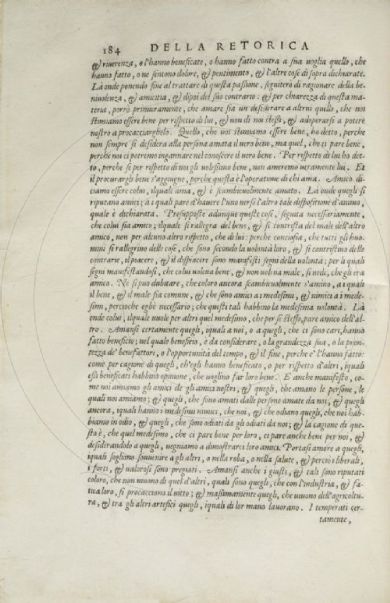 184 DELLA RETORICA
& riuerenza, o l'hanno beneficato, o hanno fatto contra a sua uoglia quello, che
hanno fatto, o ne sentono dolore, & pentimento, & l'altre cose di sopra dichiarate.
La onde ponendo fine al trattare di questa passione, seguiterò di ragionare della be-
niuolenza, & amicitia, & dipoi del suo contraro: & per chiarezza di questa ma-
teria, porrò primieramente, che amare sia un desiderar a altrui quello, che noi
stimiamo essere bene per rispetto di lui, & non di noi stessi, & adoperarsi a potere
nostro a procacciarglielo. Quello, che noi stimiamo essere bene, ho detto, perche
non sempre si desidera alla persona amata il uero bene, ma quel, che ci pare bene,
perche noi ci potremo ingannare nel conoscere il uero bene. Per rispetto di lui ho det-
to, perche se per rispetto di noi gli uolessimo bene, non ameremo ueramente lui. Et
il procurargli bene s'aggiugne, perche questa è l'operatione di chi ama. Amico di-
ciamo essere colui, ilquale ama, & è scambieuolmente amato. La onde quegli si
riputano amici; a i quali pare d'hauere l'uno uerso l'altro tale dispositione d'animo,
quale è dichiarata. Presupposte adunque queste cose, seguita necessariamente,
che colui sia amico, ilquale si rallegra del bene, & si contrista del male dell'altro
amico, non per alcuno altro rispetto, che di lui: perche conciosia, che tutti gli huo-
mini si rallegrino delle cose, che sono secondo la uolontà loro, & si contristino delle
contrarie, il piacere, & il dispiacere sono manifesti segni della uolontà; per li quali
segni manifestandosi, che colui uoleua bene, & non uoleua male, si uede, che gli era
amico. Ne si può dubitare, che coloro ancora scambieuolmente s'amino, a i quali
il bene, & il male sia comune, & che sono amici a i medesimi, & nimici a i mede-
simi, percioche egli è necessario; che questi tali habbino la medesima uolontà. La
onde colui, ilquale uuole per altri quel medesimo, che per se stesso, pare amico dell'al-
tro. Amansi certamente quegli, iquali a noi, o a quegli, che ci sono cari, hanno
fatto beneficio; nel quale beneficio, è da considerare, o la grandezza sua, o la pron-
tezza de' benefattori, o l'opportunità del tempo, & il fine, perche e' l'hanno fatto:
come per cagione di quegli, ch'egli hanno beneficato, o per rispetto d'altri, iquali
essi beneficati habbino opinione, che uoglino far loro bene. E anche manifesto, co-
me noi amiamo gli amici de gli amici nostri; & quegli, che amano le persone, le
quali noi amiamo; & quegli, che sono amati dalle persone amate da noi, & quegli
ancora, iquali hanno i medesimi nimici, che noi, & che odiano quegli, che noi hab-
biamo in odio, & quegli, che sono odiati da gli odiati da noi; & la cagione di que-
sto è, che quel medesimo, che ci pare bene per loro, ci pare anche bene per noi, &
desiderandolo a quegli, uegniamo a dimostrarci loro amici. Portasi amore a quegli,
iquali sogliono souuenire a gli altri, o nella roba, o nella salute, & perciò i liberali,
i forti, & ualorosi sono pregiati. Amansi anche i giusti, & tali sono riputati
coloro, che non uiuono di quel d'altri, quali sono quegli, che con l'industria, & fa-
tica loro, si procacciano il uitto; & massimamente quegli, che uiuono dell'agricoltu-
ra, & tra gli altri artefici quegli, iquali di lor mano lauorano. I temperati cer-
tamente,